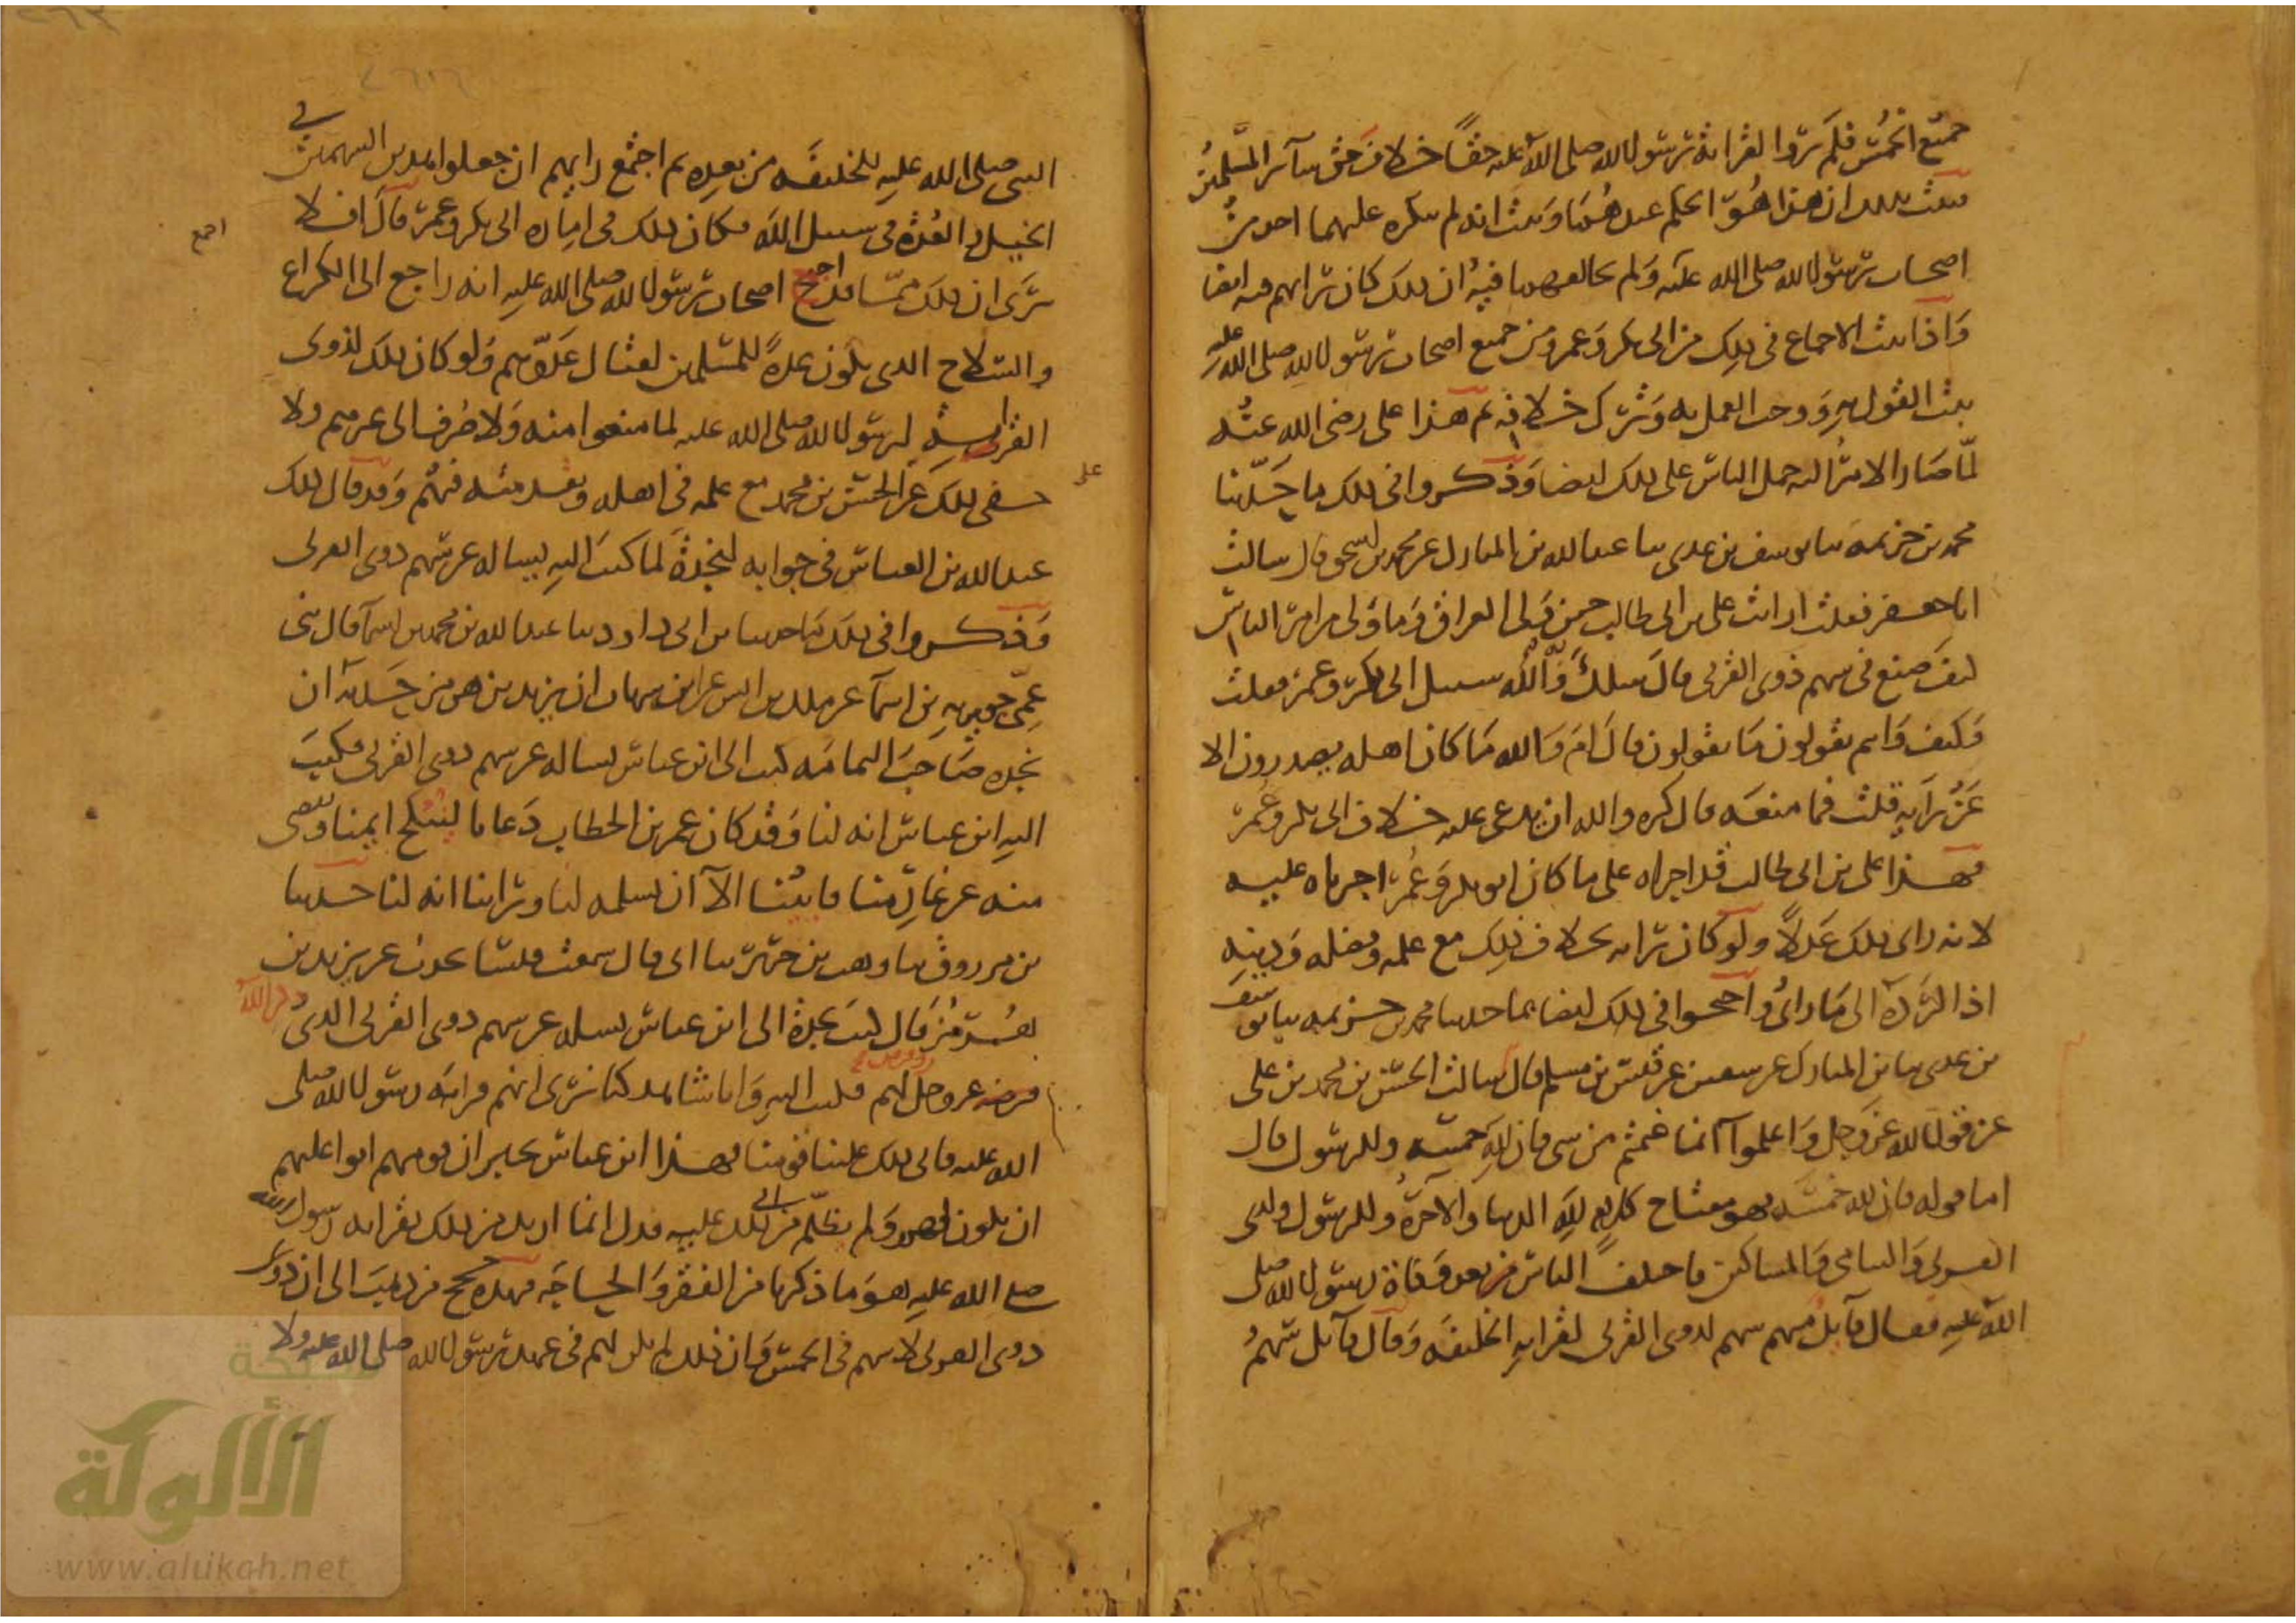 جميع الخمس فلم يروا لقرابة رسول الله صلى الله عليه حقا خلاف حق سائر المسلمين
فثبت بذلك ان هذا هو الحكم عندهما وثبت انه لم ينكره عليهما احد من
اصحاب رسول الله صلى الله عليه ولم يخالفهما فيه ان ذلك كان رايهم فيه ايضا
واذا ثبت الاجماع في ذلك من ابي بكر وعمر ومن جميع اصحاب رسول الله صلى الله عليه
ثبت القول به ووجب العمل به وترك خلافه ثم هذا علي رضي الله عنه
لما صار الامر اليه حمل الناس على ذلك ايضا وذكروا في ذلك ما حدثنا
محمد بن خزيمة نا يوسف بن عدي نا عبد الله بن المبارك عن محمد بن اسحق قال سالت
ابا جعفر فقلت ارايت علي بن ابي طالب حين ولي العراق وما ولي من امر الناس
كيف صنع في سهم ذوي القربى قال سلك والله سبيل ابي بكر وعمر فقلت
وكيف وانتم تقولون ما تقولون قال ام والله ما كان اهله يصدرون الا
عن رايه قلت فما منعه قال كره والله ان يدعى عليه خلاف ابي بكر وعمر
فهذا علي بن ابي طالب قد اجراه على ما كان ابو بكر وعمر اجرياه عليه
لانه راى ذلك عدلا ولو كان رايه خلاف ذلك مع علمه وفضله ودينه
اذا لرده الى ما راى واحتجوا في ذلك ايضا بما حدثنا محمد بن خزيمة نا يوسف
بن عدي نا بن المبارك عن سفين عن قيس بن مسلم قال سالت الحسن بن محمد بن علي
عن قول الله عز وجل واعلموا انما غنمتم من شي فان لله خمسه وللرسول قال
اما قوله فان لله خمسه فهو مفتاح كلام لله الدنيا والاخرة وللرسول ولذي
القربى واليتامى والمساكين فاختلف الناس من بعد وفاة رسول الله صلى
الله عليه فقال قائل منهم سهم لذوي القربى لقرابة الخليفة وقال قائل سهم
النبي صلى الله عليه للخليفة من بعده ثم اجتمع رايهم ان جعلوا هذين السهمين في
الخيل والعدة في سبيل الله فكان ذلك في امارة ابي بكر وعمر قال افلا
ترى ان ذلك مما قد اجمع اصحاب رسول الله صلى الله عليه انه راجع الى الكراع
اجمع
والسلاح الذي يكون عدة للمسلمين لقتال عدوهم ولو كان ذلك لذوي
القرابة لرسول الله صلى الله عليه لما منعوا منه ولا صرف الى غيرهم ولا
خفي ذلك عن الحسن بن محمد مع علمه في اهله وتقدمه فيهم وقد قال ذلك
على
عبد الله بن العباس في جوابه لنجدة لما كتب اليه يساله عن سهم ذوي القربى
وذكروا في ذلك ما حدثنا بن ابي داود نا عبد الله بن محمد بن اسما قال ثني
عمي جويرية بن اسما عن ملك بن انس عن ابن شهاب ان يزيد بن هرمز حدثه ان
نجدة صاحب اليمامة كتب الى ابن عباس يساله عن سهم ذوي القربى فكتب
اليه ابن عباس انه لنا وقد كان عمر بن الخطاب دعانا لينكح ايمنا ويقضي
منه عن غارمنا فابينا الا ان يسلمه لنا وراينا انه لنا حدثنا
بن مرزوق نا وهب بن جرير نا ابي قال سمعت قيسا يحدث عن يزيد بن
هرمز قال كتب نجدة الى ابن عباس يسله عن سهم ذوي القربى الذي ذكر الله
فرضه عز وجل لهم فكتب اليه وانا شاهد كنا نرى انهم قرابة رسول الله صلى
الله عليه فابى ذلك علينا قومنا فهذا ابن عباس يخبر ان قومهم ابوا عليهم
ان يكون لهم ولم يظلم من ابى ذلك عليه فدل انما اريد من ذلك بقرابة رسول الله
صلى الله عليه هو ما ذكرنا من الفقر والحاجة فهذه حجج من ذهب الى ان ذوي
ذوي القربى لا سهم لهم في الخمس وان ذلك لم يكن لهم في عهد رسول الله صلى الله عليه ولا
شبكة
الألوكة
www.alukah.net